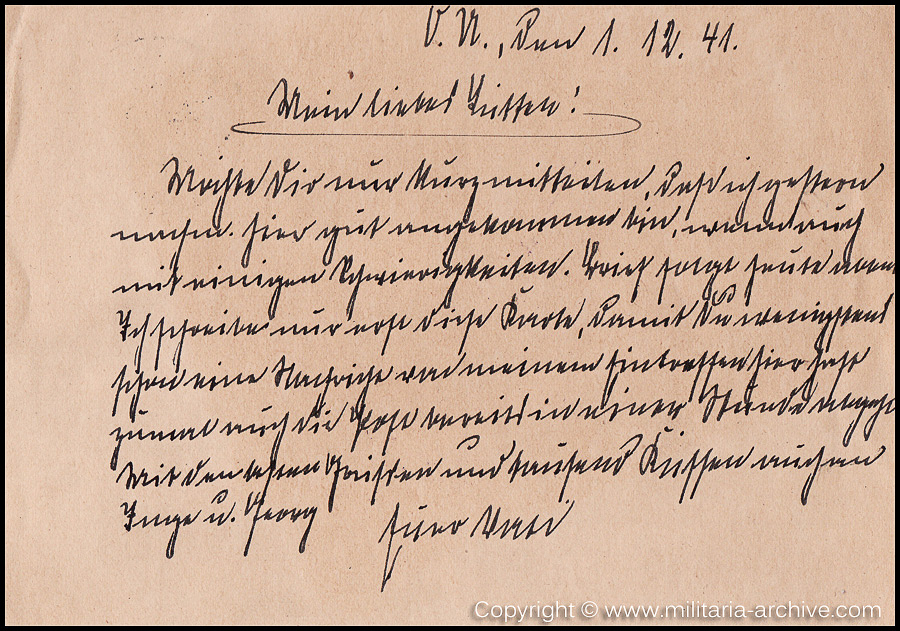 O.U., den 1. 12. 41.
Mein liebes
Möchte Dir nur kurz mitteilen, daß ich gestern
nachm. hier gut angekommen bin, wenn auch
mit einigen Schwierigkeiten. Brief folgt heute
Ich schreibe nur erst diese Karte, damit Du wenigstens
schon eine Nachricht von meinem Eintreffen hier hast
zumal auch die Post bereits in einer Stunde abgeht
Mit den besten Grüßen und tausend Küssen auch an
Inge u. Georg
Euer Vati
Copyright © www.militaria-archive.com